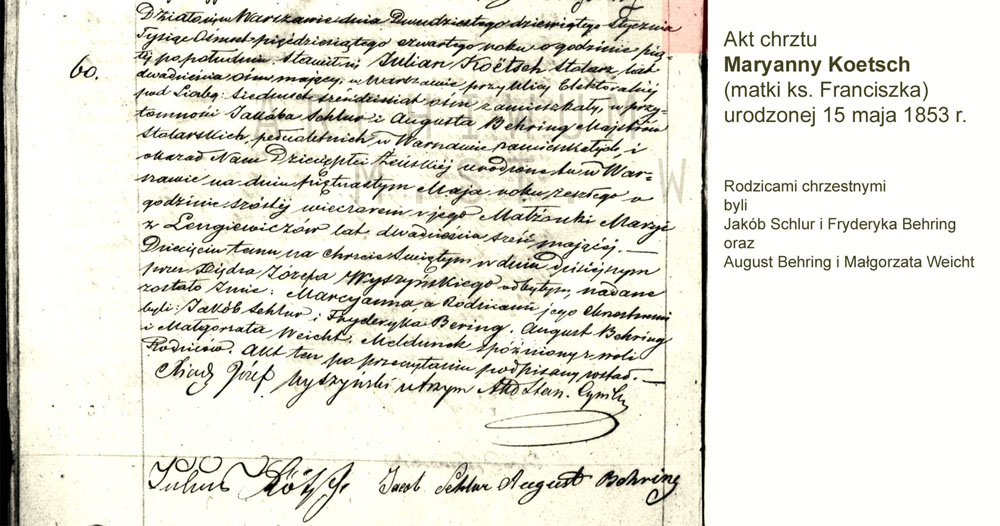 60.
Działo się w Warszawie dnia Dwudziestego dziewiątego Stycznia
Tysiąc Ośmset pięćdziesiątego czwartego roku o godzinie pią-
tej po południu. Stawił się Julian Koetsch Stolarz, lat
dwadzieścia ośm mający, w Warszawie przy ulicy Elektoralnej
pod Liczbą Siedmset sześćdziesiat ośm zamieszkały, w przy-
tomności Jakóba Schlur i Augusta Behring Majstrów
Stolarskich, pełnoletnich w Warszawie zamieszkałych, i
okazał Nam Dziecię płci Żeńskiej urodzone tu w War-
szawie na dniu piętnastym Maja roku zeszłego o
godzinie szóstej wieczorem z jego Małżonki Maryi
z Lengiewiczów lat dwadzieścia sześć mającej. —
Dziecięciu temu na chrzcie Świętym w dniu dzisiejszym
przez Xiędza Józefa Wyszyńskiego odbytym, nadane
zostało Imie: Marcyanna, a Rodzicami jego Chrzestnemi
byli: Jakób Schlur i Fryderyka Bering. August Behring
i Małgorzata Weicht. Meldunek spóźniony z woli
Rodziców. Akt ten po przeczytaniu podpisany został. —
Xiądz Józef Wyszyński utrzym Akt Stan. Cywil
Julius Jacob Schlur August Behring
Akt chrztu
Maryanny Koetsch
(matki ks. Franciszka)
urodzonej 15 maja 1853 r.
Rodzicami chrzestnymi
byli
Jakób Schlur i Fryderyka Behring
oraz
August Behring i Małgorzata Weicht